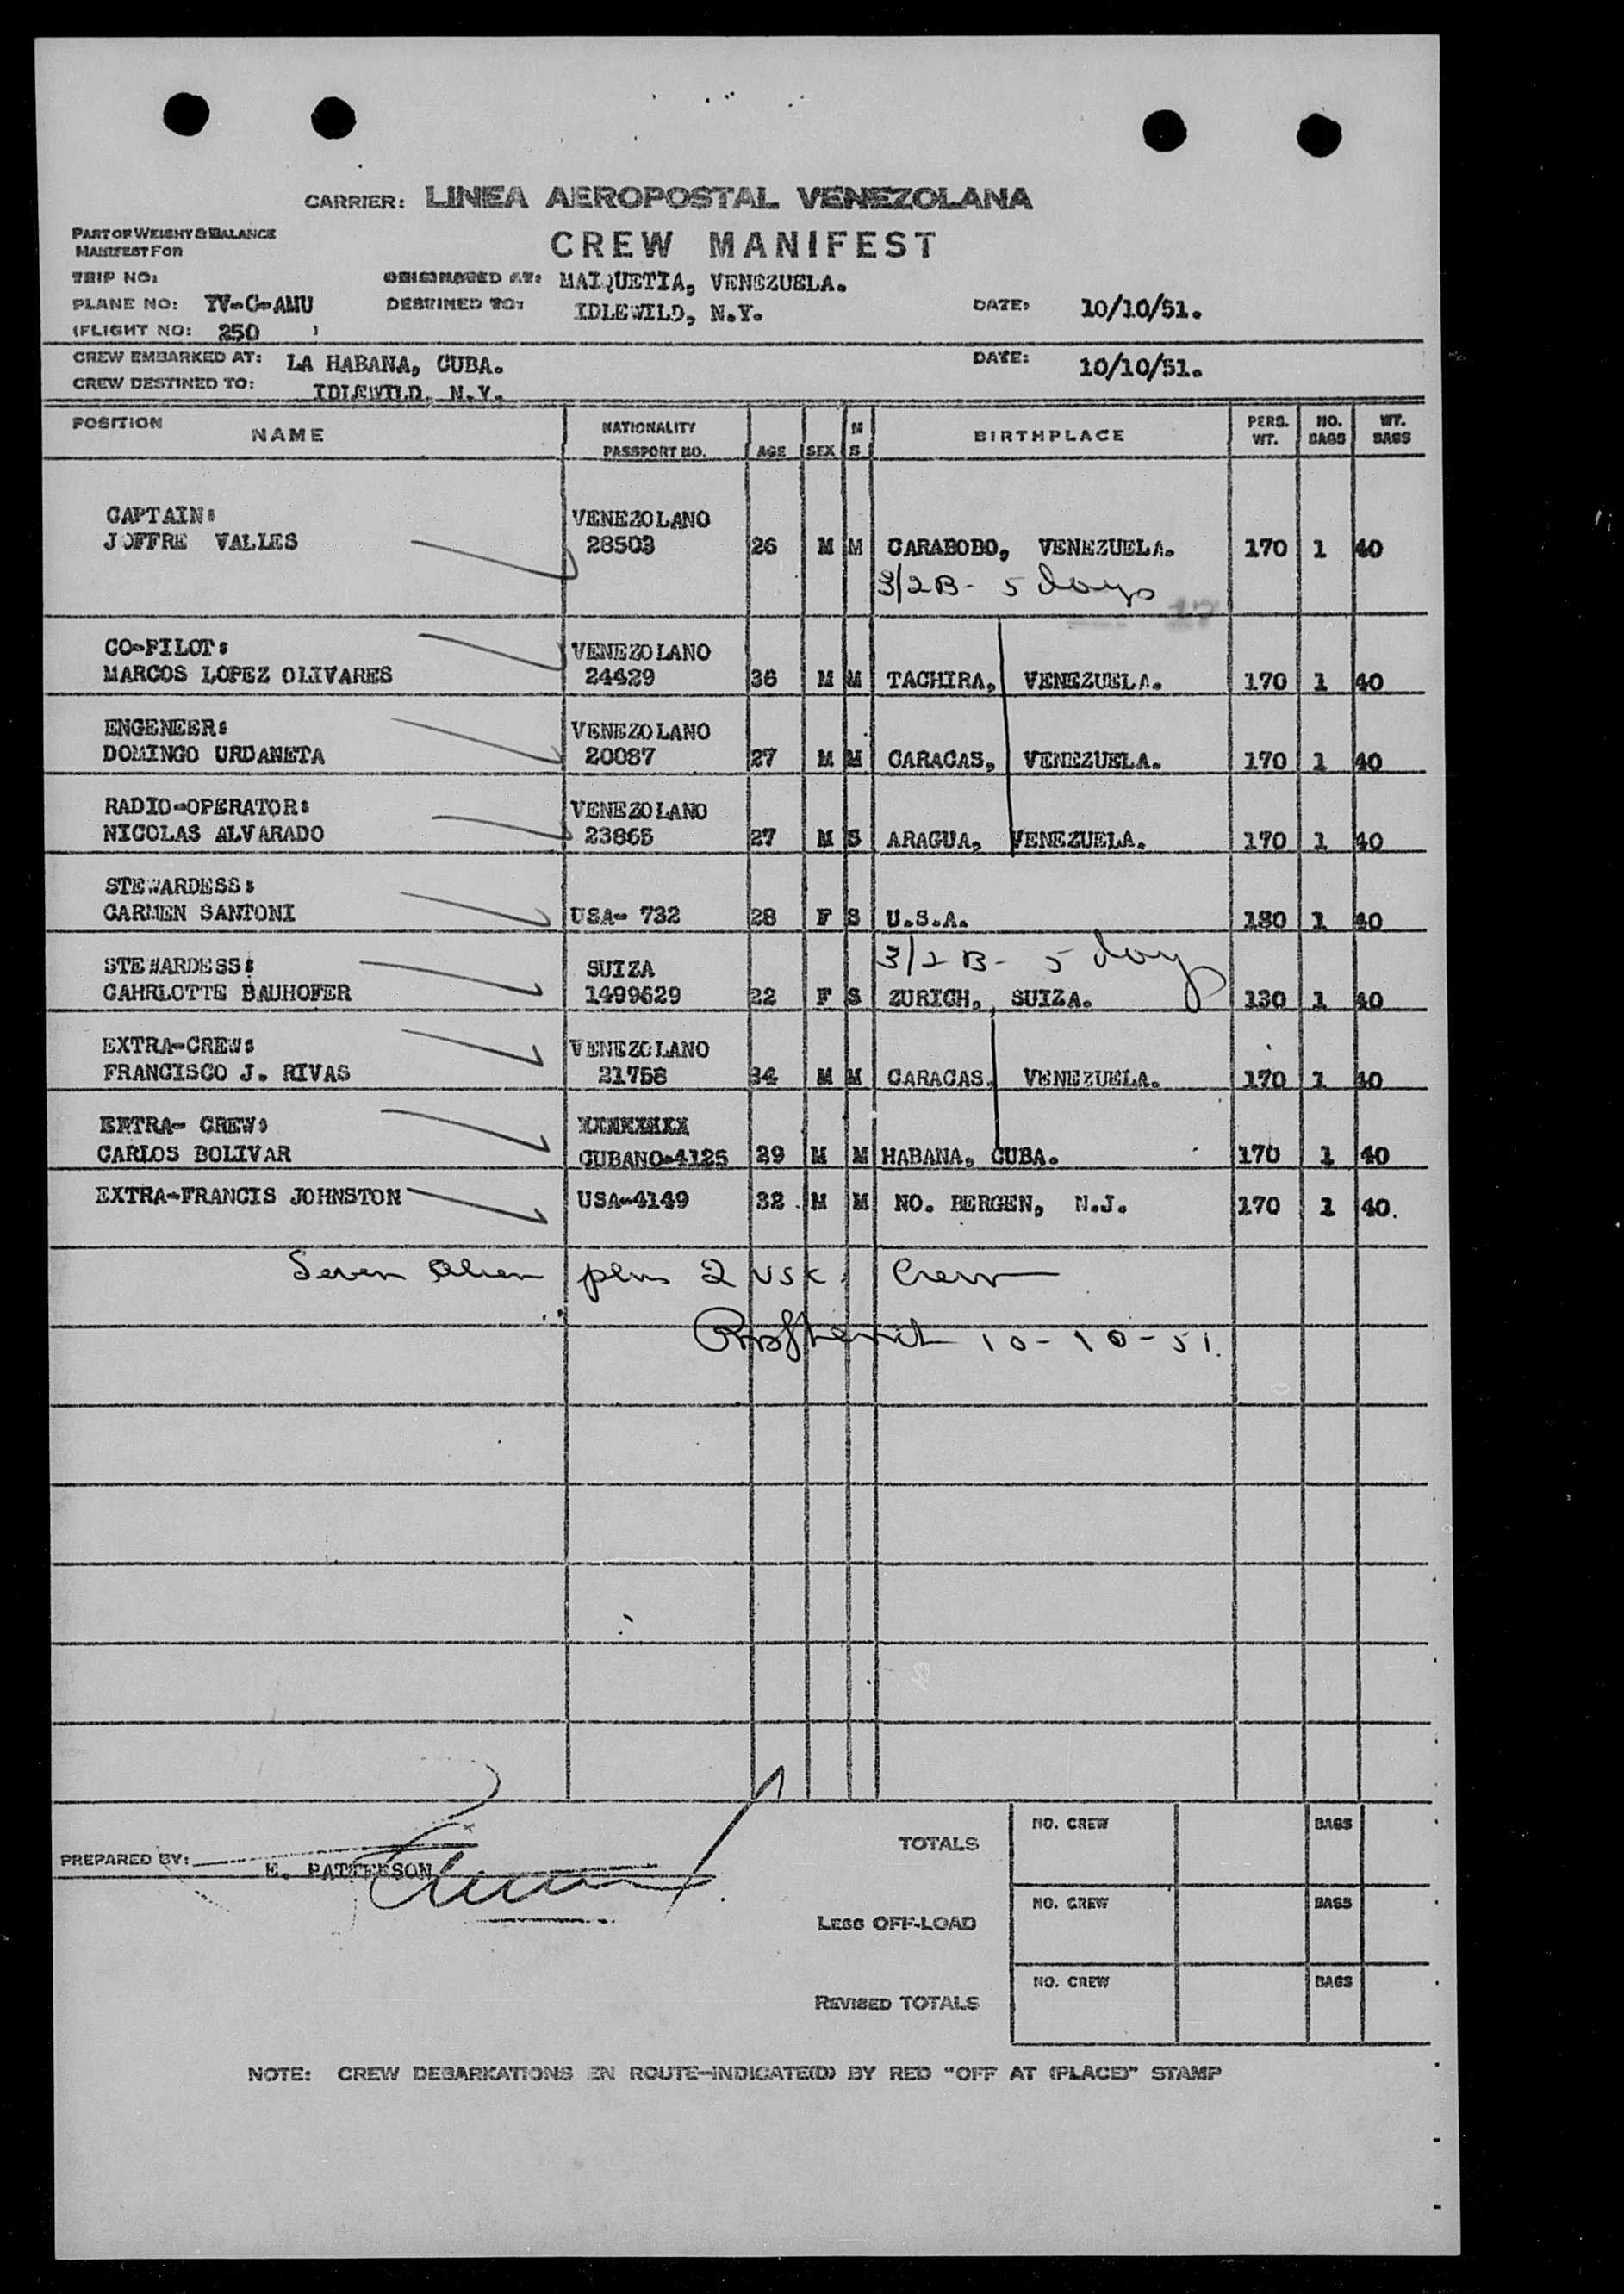 CARRIER: LINEA AEROPOSTAL VENEZOLANA
PART OF WEIGHT & BALANCE
MANIFEST FOR
CREW MANIFEST
TRIP NO: ORIGINATED AT: MAIQUETIA, VENEZUELA.
PLANE NO: YV-C-AMU DESTINED TO: IDLEWILD, N.Y. DATE: 10/10/51.
(FLIGHT NO: 250 )
CREW EMBARKED AT: LA HABANA, CUBA. DATE: 10/10/51.
CREW DESTINED TO: IDLEWILD, N.Y.
POSITION NAME NATIONALITY PASSPORT NO. AGE SEX M S BIRTHPLACE PERS. WT. NO. BAGS WT. BAGS
CAPTAIN: VENEZOLANO
JOFFRE VALLES 28503 26 M M CARABOBO, VENEZUELA. 170 1 40
3/2B - 5 days
17
CO-PILOT: VENEZOLANO
MARCOS LOPEZ OLIVARES 24429 36 M M TACHIRA, VENEZUELA. 170 1 40
ENGENEER: VENEZOLANO
DOMINGO URDANETA 20087 27 M M CARACAS, VENEZUELA. 170 1 40
RADIO-OPERATOR: VENEZOLANO
NICOLAS ALVARADO 23865 27 M S ARAGUA, VENEZUELA. 170 1 40
STEWARDESS:
CARMEN SANTONI USA- 732 28 F S U.S.A. 130 1 40
STEWARDESS: SUIZA 3/2 B - 5 days
CAHRLOTTE BAUHOFER 1499629 22 F S ZURICH, SUIZA. 130 1 40
EXTRA-CREW: VENEZOLANO
FRANCISCO J. RIVAS 21758 34 M M CARACAS, VENEZUELA. 170 1 40
EXTRA- CREW:
CARLOS BOLIVAR CUBANO-4125 29 M M HABANA, CUBA. 170 1 40
EXTRA-FRANCIS JOHNSTON USA-4149 32 M M NO. BERGEN, N.J. 170 1 40.
Seven Alien plus 2 USC Crew
10-10-51.
PREPARED BY: E. PATTERSON
TOTALS NO. CREW BAGS
LESS OFF-LOAD NO. CREW BAGS
REVISED TOTALS NO. CREW BAGS
NOTE: CREW DEBARKATIONS EN ROUTE-INDICATE(D) BY RED "OFF AT (PLACE)" STAMP